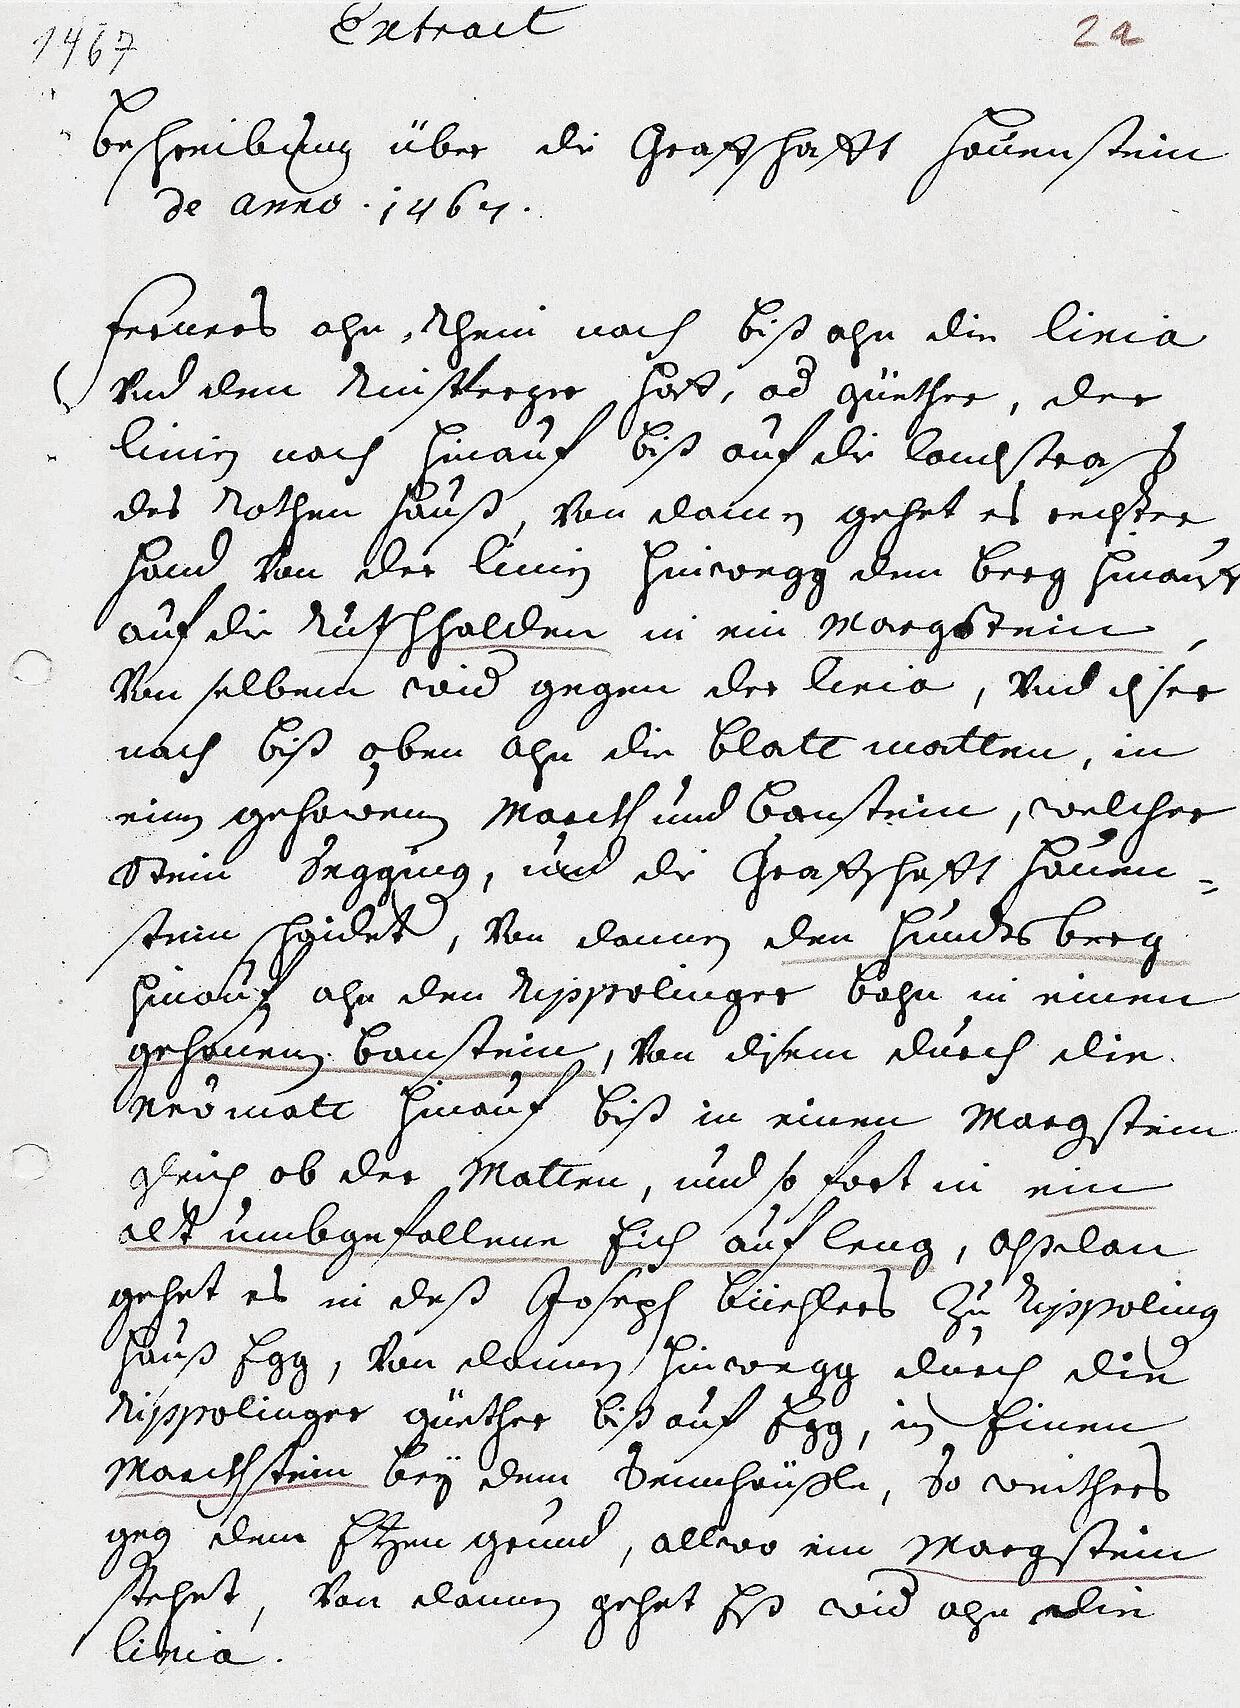 1467
Extract
2a
beschreibung über die Graffschafft Hauenstein
de anno . 1467 .
ferners ahn Rhein nach biß ahn die linia
Vnd dem hatt, od güether, der
linien nach hinauf biß auf die landstraß
des Rothen Hauß, Von dannen gehet es rechter
Hand Von der linien hinwegg den berg hinauff
auf die Rütschhalden in ein Margstein,
Von selbem wid gegen der linia, Vnd diser
nach biß oben ahn die Blatt matten, in
einen gehawenen Marckh und banstein, welcher
Stein Seggingen, und die Graffschafft Hauen=
stein scheidet, Von dannen den Hundtsberg
hinauf ahn den Rippolinger bahn in einen
gehauenen banstein, Von disem durch die
matt hinauf biß in einen Margstein
gleich ob der Matten, und so fort in ein
alt umbgefallene Eich auf leng, alßdan
gehet es in deß Joseph büehlers Zu Rippoling
Hauß Egg, Von dannen hinwegg durch die
Rippolinger güether biß auf Egg, in Einen
Marckhstein bey dem Sennhäußle, So weithers
geg dem Etzen grund, allwo ein Margstein
stehet, Von dannen gehet Eß wid ahn die
linia.